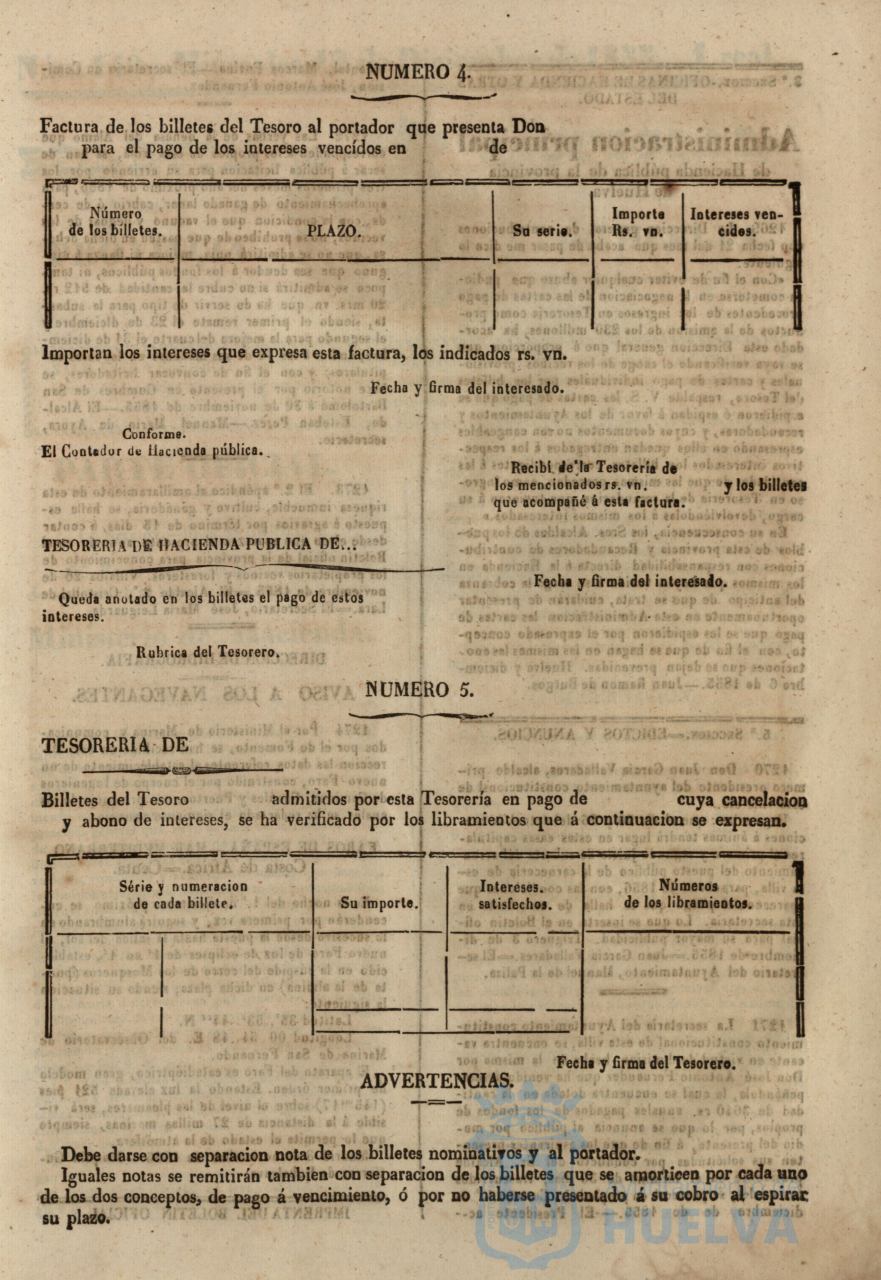 NUMERO 4.
Factura de los billetes del Tesoro al portador que presenta Don
para el pago de los intereses vencidos en de
Número
de los billetes.
PLAZO.
Su serie.
Importe
Rs. vn.
Intereses ven-
cidos.
Importan los intereses que expresa esta factura, los indicados rs. vn.
Fecha y firma del interesado.
Conforme.
El Contador de Hacienda pública.
Recibí de la Tesorería de
los mencionados rs. vn. y los billetes
que acompañé á esta factura.
TESORERIA DE HACIENDA PUBLICA DE...
Fecha y firma del interesado.
Queda anotado en los billetes el pago de estos
intereses.
Rubrica del Tesorero.
NUMERO 5.
TESORERIA DE
Billetes del Tesoro admitidos por esta Tesorería en pago de cuya cancelacion
y abono de intereses, se ha verificado por los libramientos que á continuacion se expresan.
Série y numeracion
de cada billete.
Su importe.
Intereses.
satisfechos.
Números
de los libramientos.
Fecha y firma del Tesorero.
ADVERTENCIAS.
Debe darse con separacion nota de los billetes nominativos y al portador.
Iguales notas se remitirán tambien con separacion de los billetes que se amorticen por cada uno
de los dos conceptos, de pago á vencimiento, ó por no haberse presentado á su cobro al espirar
su plazo.
HUELVA